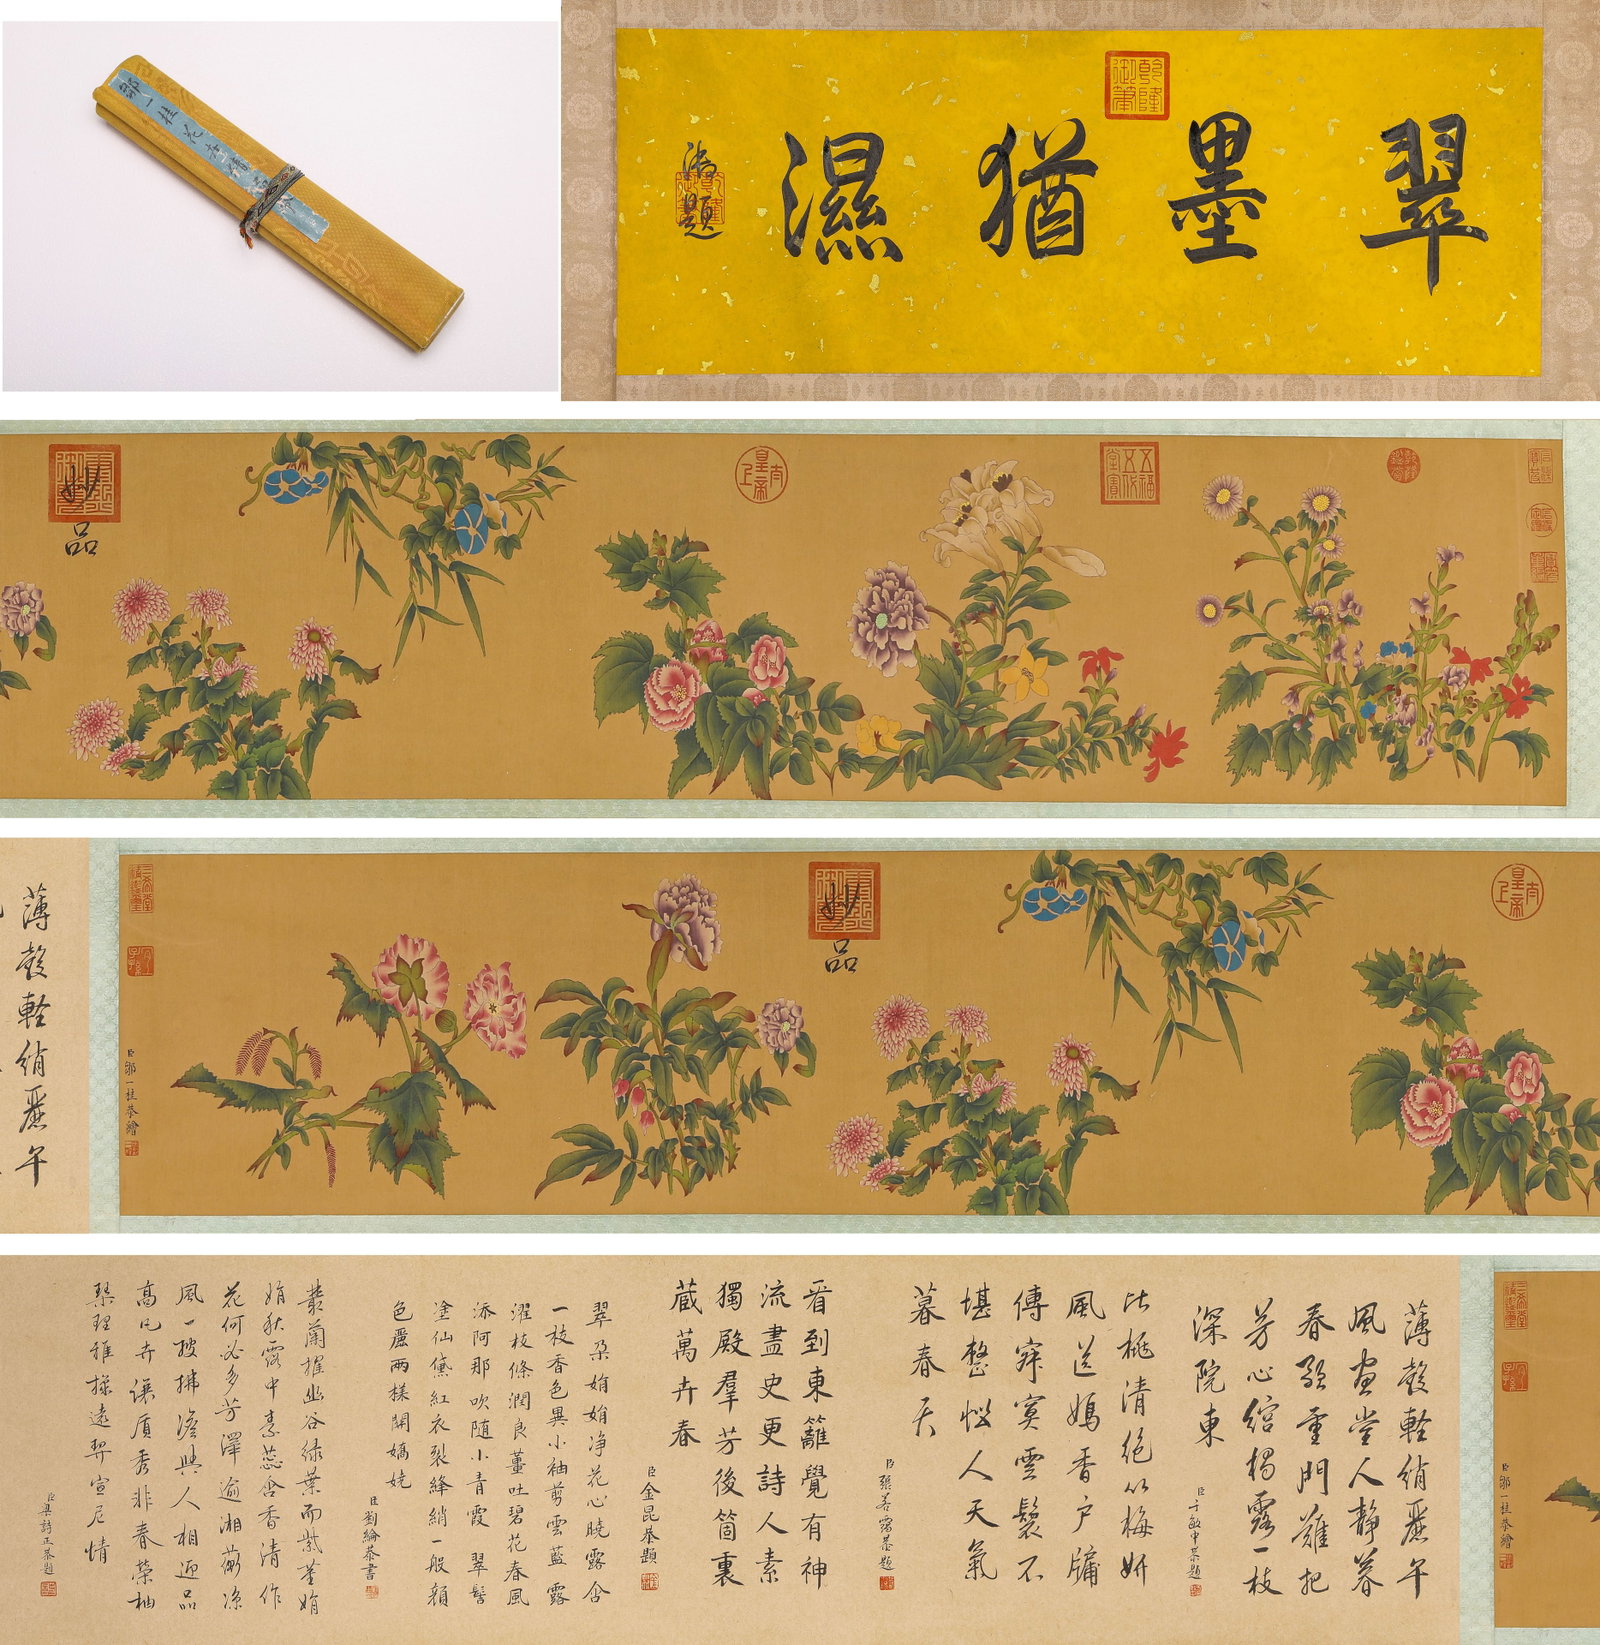 鄒一桂花卉
翠墨猶濕
御題
乾隆御筆
太上皇帝
五福五代堂寶
妙品
臣鄒一桂恭繪
薄縠輕綃麗午
風畫堂人靜暮
春融重門難把
芳心綰獨露一枝
深院東
臣于敏中恭題
比桃清絶似梅妍
風送媽香户牖
傳寂寞雲鬟不
堪整惱人天氣
暮春天
臣張若靄恭題
看到東籬覺有神
流盡史更詩人素
獨殿羣芳後箇裏
蔵萬卉春
臣金昆恭題
翠朶娟娟净花心曉露含
一枝香色異小袖剪雲藍露
濯枝條潤良薑吐碧花春風
添阿那吹随小青霞翠髻
塗仙黛紅衣裂絳綃一般顔
色處兩様開嬌嬈
臣劉綸恭書
叢蘭擢幽谷緑葉而紫莖娟
娟秋露中素蕊含香清作
花何必多芳澤逾湘蘅凉
風一披拂澹與人相迎品
高凡卉讓質秀非春榮柚
琴理雅操遠契宣尼情
臣梁詩正恭題